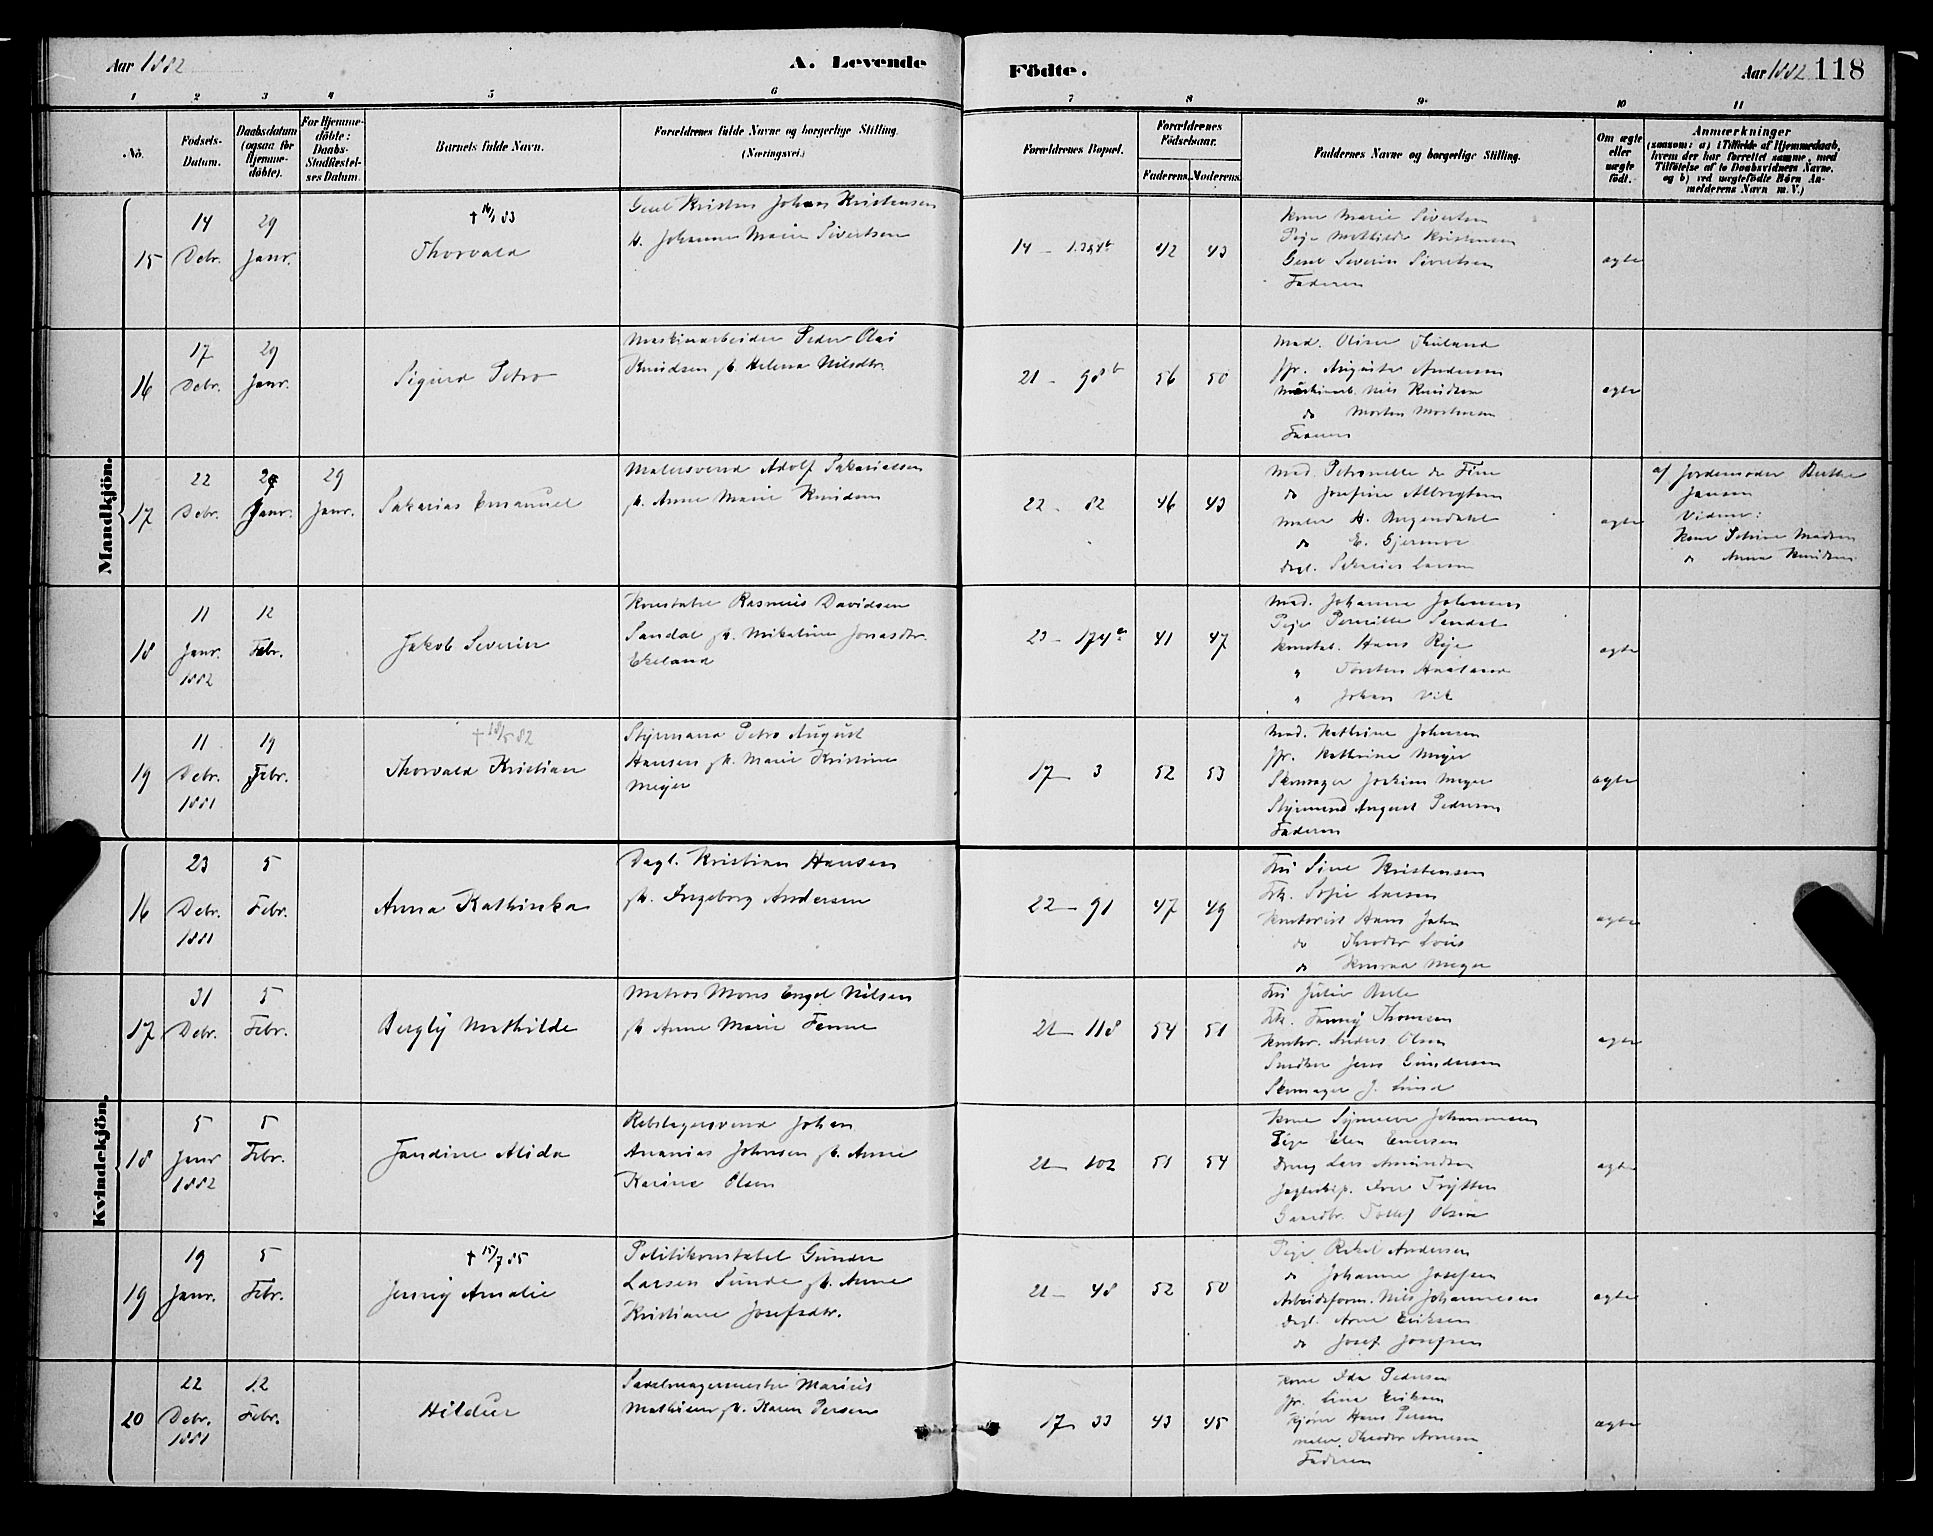 Aar 1882
A. Levende
Födte.
Aar 1882 118
1 2 3 4 5 6 7 8 9 10 11
No.
Födsels-
Datum.
Daabsdatum
(ogsaa for
Hjemme-
döbte).
For Hjemme-
döbte:
Daabs-
Stadfæstel-
ses Datum.
Barnets fulde Navn.
Forældrenes fulde Navne og borgerlige Stilling.
(Næringsvei.)
Forældrenes Bopæl.
Forældrenes
Födselsaar.
Faderens. Moderens.
Faddernes Navne og borgerlige Stilling.
Om ægte
eller
uægte
födt.
Anmærkninger
(saasom: a) i Tilfælde af Hjemmedaab,
hvem der har forrettet samme, med
Tilföielse af to Daabsvidners Navne.
og b) ved uægtefödte Börn An-
melderens Navn m. V.)
Mandkjön.
15
14
Debr.
29
Janr.
Thorvald
Kristen Johan Kristensen
H. Johanne Marie Sivertsen
14
42 43
Kone Marie Sivertsen
Pige Mathilde Kristensen
Severin Sivertsen
Faderen
ægte
16
17
Debr.
29
Janr.
Sigurd Petro
Maskinarbeider Peder Olai
Knudsen h. Helena Nilsdtr.
21 - 98 b
56 50
Mad. Oline
jfr. Augusta Andersen
Maskinarb. Nils Knudsen
do Morten Mortensen
Faderen
ægte
17
22
Debr.
29
Janr.
29
Janr.
Sakarias Emanuel
Malersvend Adolf Sakariassen
h. Anne Marie Knudsen
22 - 82
46 43
Mad. Petronelle de Fine
do Josefine Albregtsen
Maler H.
do E. Gjermoe
Dagl. Sakarias Larsen
ægte
af Jordemoder Berthe
Jansen
Vidner:
Kone Madsen
do Anna Knudsen
18
11
Janr.
1882
12
Febr.
Jakob Severin
Konstabel Rasmus Davidsen
Sandal h. Mikaline Jonasdtr.
Ekeland
23 - 174 a
41 47
Mad. Johanne Johnsen
Pige Pernille Sandal
Konstab. Hans
" Torsten
" Johan Vik
ægte
19
11
Debr.
1881
19
Febr.
† 18/5 82
Thorvald Kristian
Styrmand Petro August
Hansen h. Marie Kristine
Meyer
17 - 3
52 53
Mad. Kathrine Johnsen
jfr. Kathrine Meyer
Skomager Joakim Meyer
Styrmand August Pedersen
Faderen
ægte
Kvindekjön.
16
23
Debr.
1881
5
Febr.
Anna Kathinka
Dagl. Kristian Hansen
h. Ingeborg Andersen
22 - 91
47 49
Fru Sine Kristensen
Frk. Sofie Larsen
Kontorist Hans Jahn
do Theodor
do Konrad Meyer
ægte
17
31
Debr.
5
Febr.
Bergly Mathilde
Matros Mons Engel Nilsen
h. Anne Marie Fenne
21 - 118
54 51
Fru Julie
Frk. Fanny Thomsen
Kontor. Anders Olsen
Snedker Jens Gundersen
Skomager J. Lund
ægte
18
5
Janr
1882
5
Febr.
Jandine Alida
Rebslagersvend Johan
Ananias Johnsen h. Anne
Karine Olsen
21 - 102
51 54
Kone Synneve Johannesen
Pige Elen
Dreng Lars Amundsen
Gaardbr.
ægte
19
19
Janr.
5
Febr.
† 15/7 85
Jenny Amalie
Politikonstabel Gunder
Larsen Sunde h. Anne
Kristiane Josefsdtr.
21 - 48
52 50
Pige Rakel Andersen
do Johanne Josefsen
Arbeidsform. Nils Johannesen
Dagl. Arne Eriksen
do Josef Josefsen
ægte
20
22
Debr.
1881
12
Febr.
Hildur
Sadelmagermester Marius
Mathisen h. Karen Persen
17 - 33
43 45
Kone Ida Pedersen
jfr. Lina Eriksen
Hans Persen
Maler Theodor Arnesen
Faderen
ægte